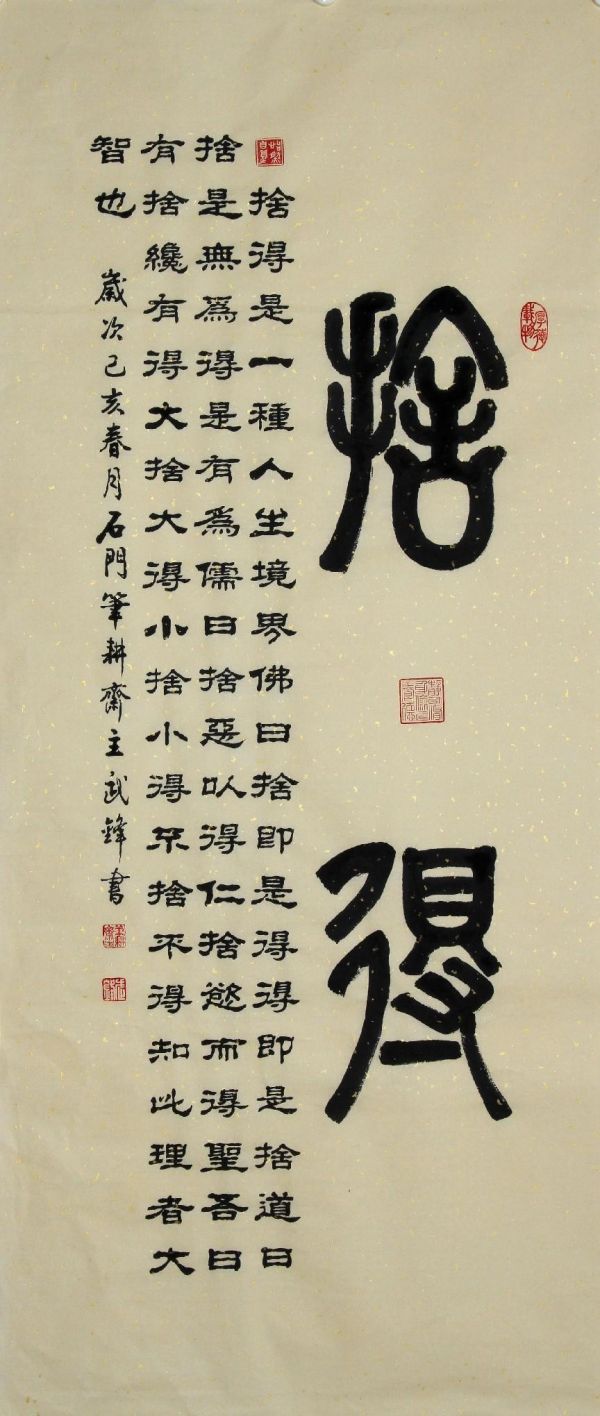 厚德載物
捨得
捨得是一種人生境界佛曰捨即是得得即是捨道曰
捨是無爲得是有爲儒曰捨惡以得仁捨慾而得聖吾曰
有捨纔有得大捨大得小捨小得不捨不得知此理者大
智也
歲次己亥春月石門筆耕齋主武鋒書